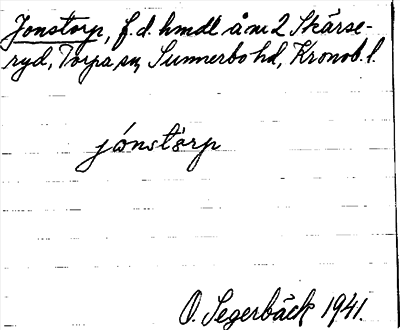 Jonstorp, f.d. hmdl å nr 2 Skärse-
ryd, Torpa sn, Sunnerbo hd, Kronob. l.
jónstȯrp
O. Segerbäck 1941.